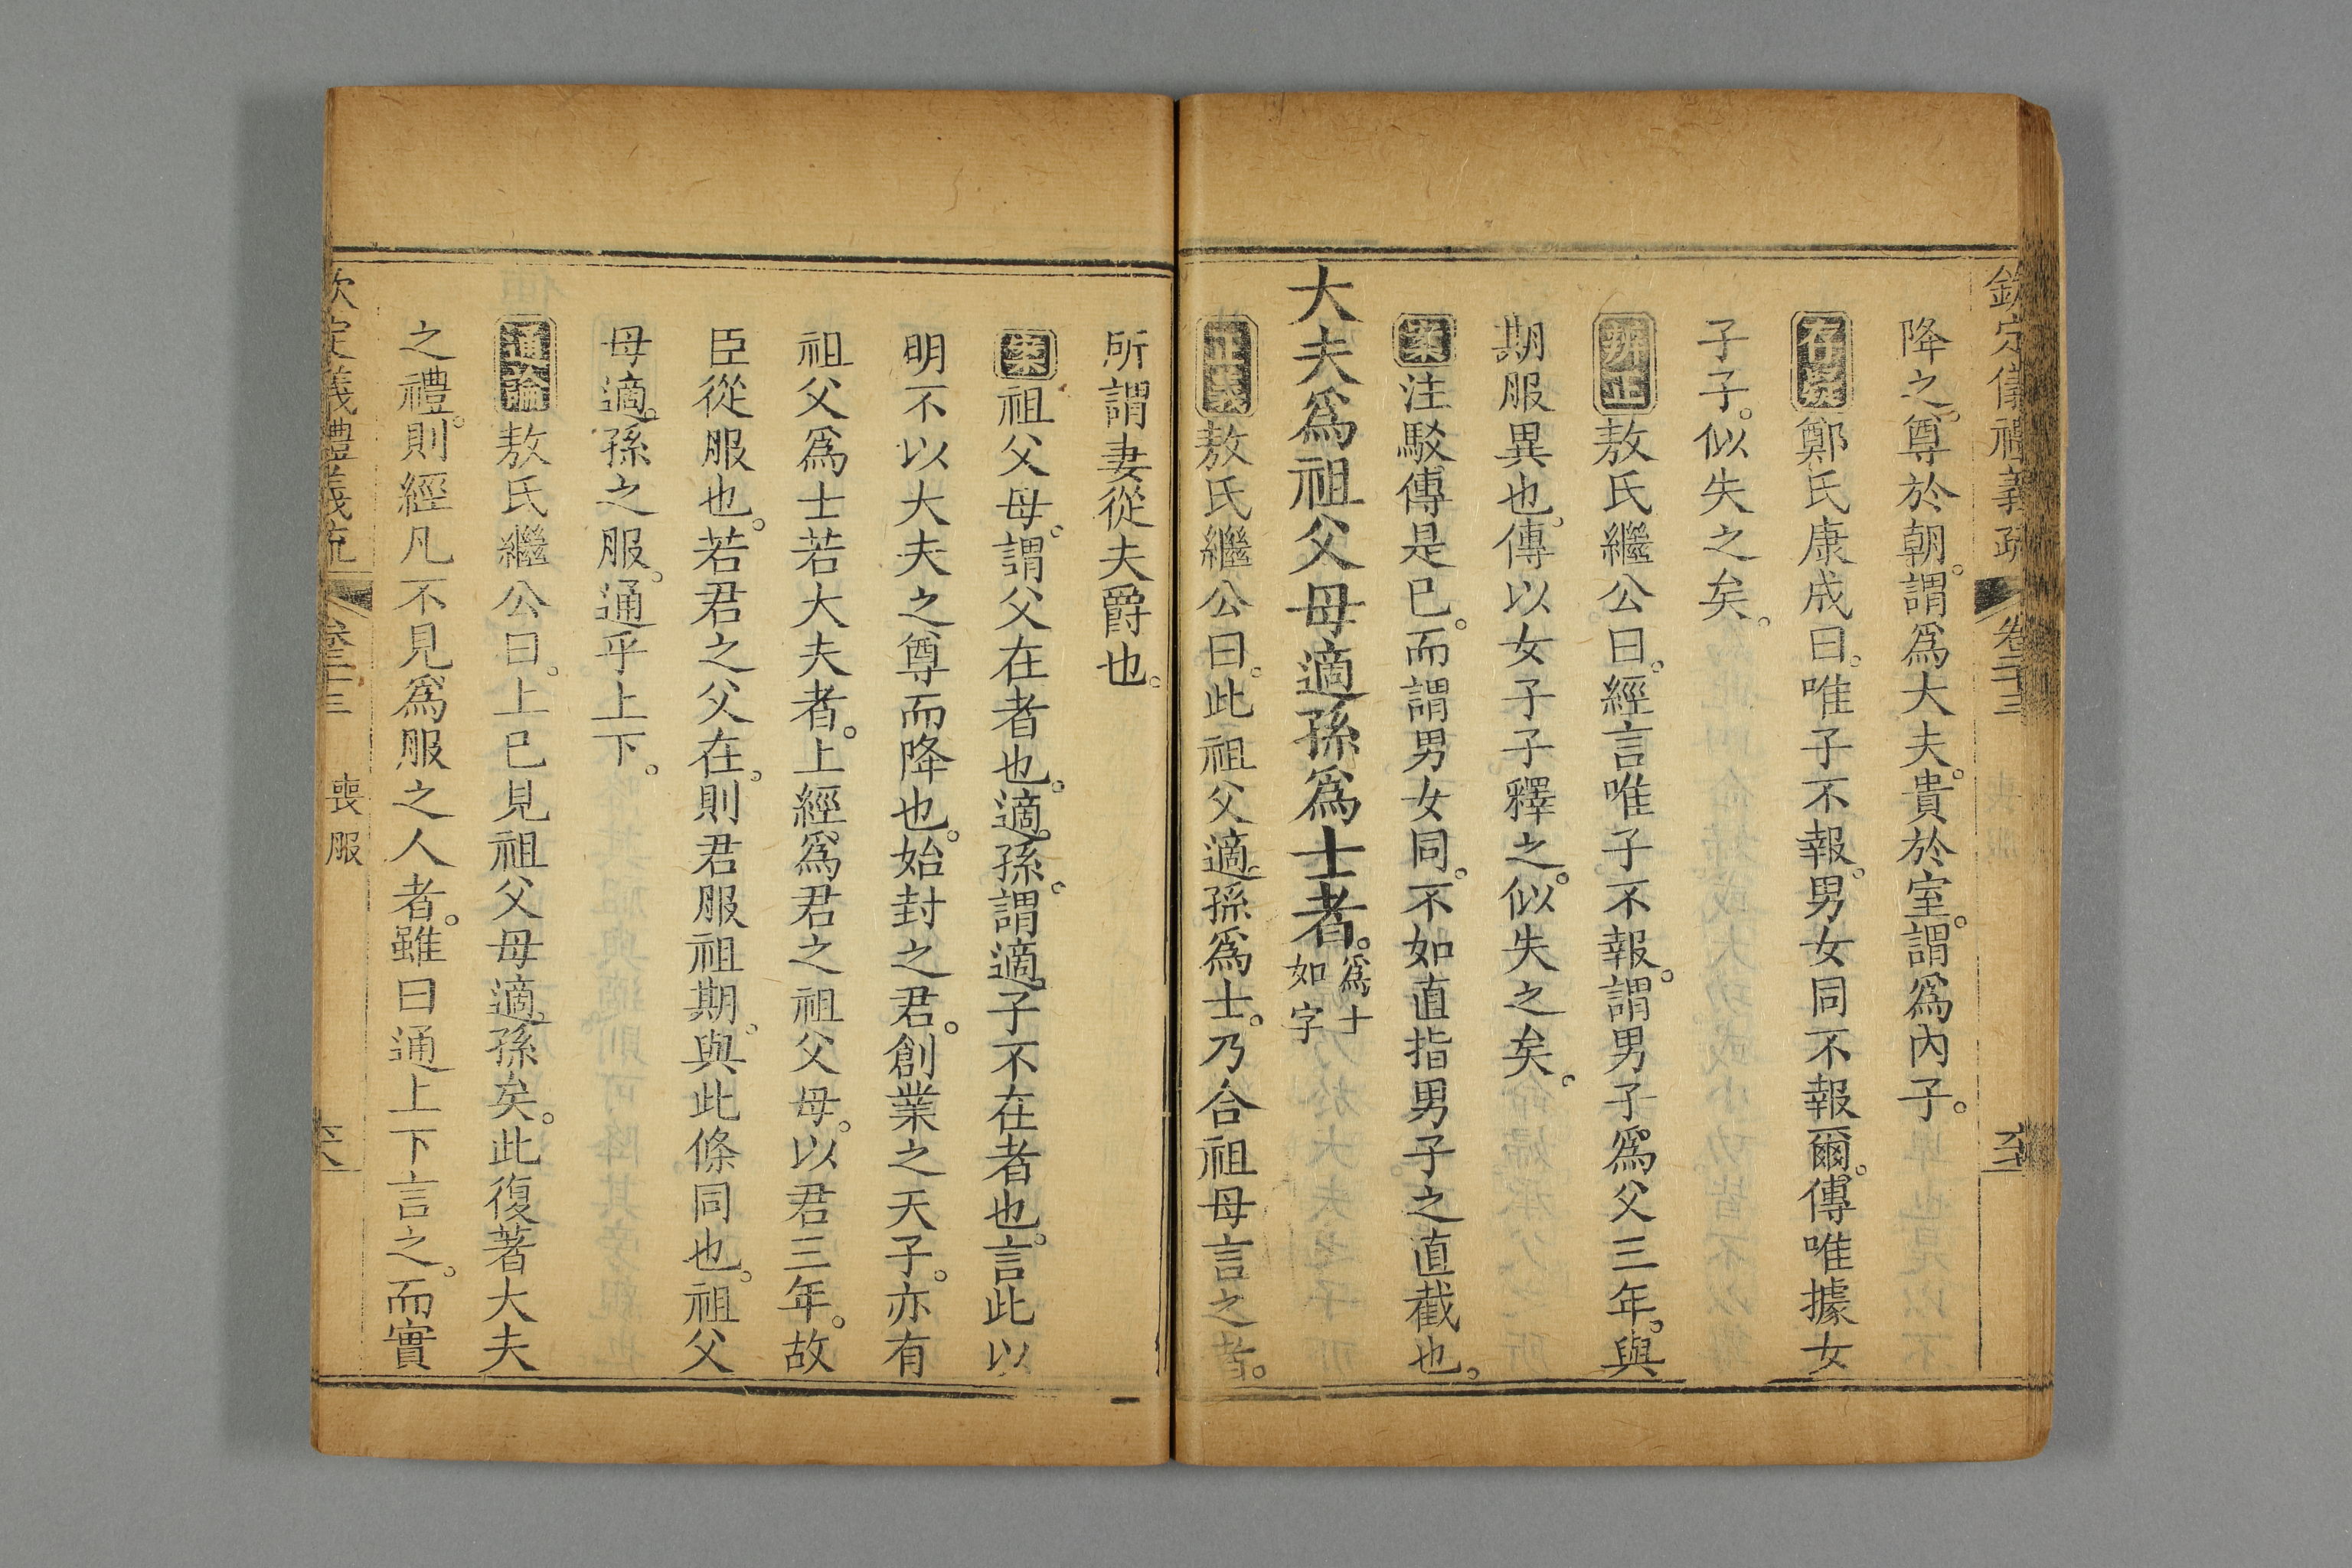 欽定儀禮義疏 卷二十三
降之。尊於朝。謂爲大夫。貴於室。謂爲內子。
存疑 鄭氏康成曰。唯子不報。男女同不報爾。傳唯據女
子子。似失之矣。
辨正 敖氏繼公曰。經言唯子不報。謂男子爲父三年。與
期服異也。傳以女子子釋之。似失之矣。
案 注駁傳是已。而謂男女同。不如直指男子之直截也。
大夫爲祖父母適孫爲士者。爲士如字
正義 敖氏繼公曰。此祖父適孫爲士。乃合祖母言之者。
所謂妻從夫爵也。
案 祖父母。謂父在者也。適孫。謂適子不在者也。言此以
明不以大夫之尊而降也。始封之君。創業之天子。亦有
祖父爲士若大夫者。上經爲君之祖父母。以君三年。故
臣從服也。若君之父在。則君服祖期。與此條同也。祖父
母適。孫之服。通乎上下。
通論 敖氏繼公曰。上已見祖父母適孫矣。此復著大夫
之禮。則經凡不見爲服之人者。雖曰通上下言之。而實
欽定儀禮義疏 卷二十三 喪服